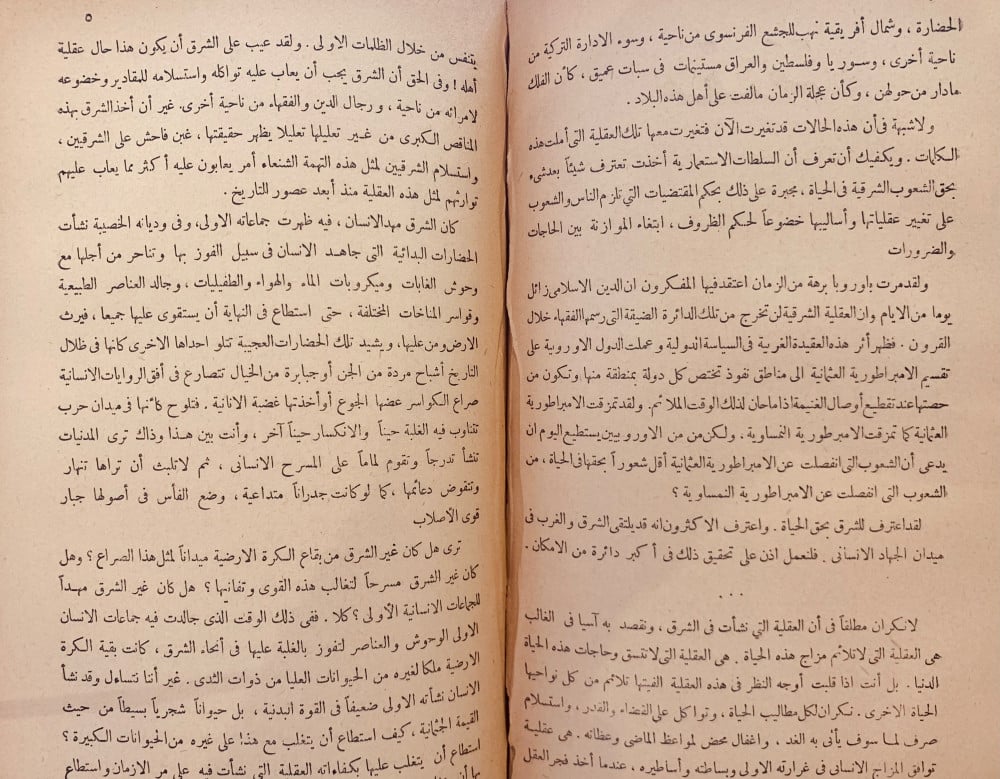 الحضارة ، وشمال أفريقية نهب للجشع الفرنسوى من ناحية ، وسوء الادارة التركية من
ناحية أخرى ، وسوريا وفلسطين والعراق مستنيمات فى سبات عميق ، كأن الفلك
مادار من حولهن ، وكأن عجلة الزمان مالفت على أهل هذه البلاد .
ولا شبهة فى أن هذه الحالات قد تغيرت الآن فتغيرت معها تلك العقلية التى أملت هذه
الكلمات . ويكفيك أن تعرف أن السلطات الاستعمارية أخذت تعترف شيئاً بعد شىء
بحق الشعوب الشرقية فى الحياة ، مجبرة على ذلك بحكم المقتضيات التى تلزم الناس والشعوب
على تغيير عقلياتها وأساليبها خضوعاً لحكم الظروف ، ابتغاء الموازنة بين الحاجات
والضرورات
ولقد مرت باوروبا برهة من الزمان اعتقد فيها المفكرون ان الدين الاسلامى زائل
يوما من الايام وان العقلية الشرقية لن تخرج من تلك الدائرة الضيقة التى رسمها الفقهاء خلال
القرون . فظهر أثر هذه العقيدة الغربية فى السياسة الدولية وعملت الدول الاوروبية على
تقسيم الامبراطورية العثمانية الى مناطق نفوذ تختص كل دولة بمنطقة منها وتكون من
حصتها عند تقطيع أوصال الغنيمة اذا ما حان لذلك الوقت الملائم . ولقد تمزقت الامبراطورية
العثمانية كما تمزقت الامبرطورية النمساوية ، ولكن من من الاوروبيين يستطيع اليوم ان
يدعى أن الشعوب التى انفصلت عن الامبراطورية العثمانية أقل شعوراً بحقها فى الحياة ، من
الشعوب التى انفصلت عن الامبراطورية النمساوية ؟
لقد اعترف للشرق بحق الحياة . واعترف الاكثرون انه قد يلتقى الشرق والغرب فى
ميدان الجهاد الانسانى . فلنعمل اذن على تحقيق ذلك فى أكبر دائرة من الامكان .
. . .
لانكران مطلقاً فى أن العقلية التى نشأت فى الشرق ، ونقصد به آسيا فى الغالب
هى العقلية التى لا تلائم مزاج هذه الحياة . هى العقلية التى لا تتسق وحاجات هذه الحياة
الدنيا . بل أنت اذا قلبت أوجه النظر فى هذه العقلية الفيتها تلائم من كل نواحيها
الحياة الاخرى . نكران لكل مطاليب الحياة ، وتواكل على القضاء والقدر ، واستسلام
صرف لما سوف يأتى به الغد ، واغفال محض لمواعظ الماضى وعظاته . هى عقلية
توافق المزاج الانسانى فى غرارته الاولى وبساطته وأساطيره ، عندما أخذ فجر العقل
٥
يتنفس من خلال الظلمات الاولى . ولقد عيب على الشرق أن يكون هذا حال عقلية
أهله ! وفى الحق أن الشرق يجب أن يعاب عليه تواكله واستسلامه للمقادير وخضوعه
لامرائه من ناحية ، ورجال الدين والفقهاء من ناحية أخرى . غير أن أخذ الشرق بهذه
المناقص الكبرى من غير تعليلها تعليلا يظهر حقيقتها ، غبن فاحش على الشرقيين ،
واستسلام الشرقيين لمثل هذه التهمة الشنعاء أمر يعابون عليه أكثر مما يعاب عليهم
توارثهم لمثل هذه العقلية منذ أبعد عصور التاريخ .
كان الشرق مهد الانسان ، فيه ظهرت جماعاته الاولى ، وفى وديانه الخصيبة نشأت
الحضارات البدائية التى جاهد الانسان فى سبيل الفوز بها وتناحر من أجلها مع
وحوش الغابات وميكروبات الماء والهواء والطفيليات ، وجالد العناصر الطبيعية
وقواسر المناخات المختلفة ، حتى استطاع فى النهاية أن يستقوى عليها جميعا ، فيرث
الارض ومن عليها ، ويشيد تلك الحضارات العجيبة تتلو احداها الاخرى كانها فى ظلال
التاريخ أشباح مردة من الجن أو جبابرة من الخيال تتصارع فى أفق الروايات الانسانية
صراع الكواسر عضها الجوع أو أخذتها غضبة الانانية . فتلوح كأنها فى ميدان حرب
تتناوب فيه الغلبة حيناً والانكسار حيناً آخر ، وأنت بين هذا وذاك ترى المدنيات
تنشأ تدرجاً وتقوم لماماً على المسرح الانسانى ، ثم لا تلبث أن تراها تنهار
وتتقوض دعائمها ، كما لو كانت جدراناً متداعية ، وضع الفأس فى أصولها جبار
قوى الأصلاب
ترى هل كان غير الشرق من بقاع الكرة الارضية ميداناً لمثل هذا الصراع ؟ وهل
كان غير الشرق مسرحاً لتغالب هذه القوى وتفانيها ؟ هل كان غير الشرق مهداً
للجماعات الانسانية الأولى ؟ كلا . ففى ذلك الوقت الذى جالدت فيه جماعات الانسان
الاولى الوحوش والعناصر لتفوز بالغلبة عليها فى أنحاء الشرق ، كانت بقية الكرة
الارضية ملكا لغيره من الحيوانات العليا من ذوات الثدى . غير أننا نتساءل وقد نشأ
الانسان نشأته الاولى ضعيفاً فى القوة البدنية ، بل حيواناً شجرياً بسيطاً من حيث
القيمة الجثمانية ، كيف استطاع أن يتغلب مع هذا على غيره من الحيوانات الكبيرة ؟
استطاع أن يتغلب عليها بكفاءاته العقلية التى نشأت فيه على مر الازمان واستطاع